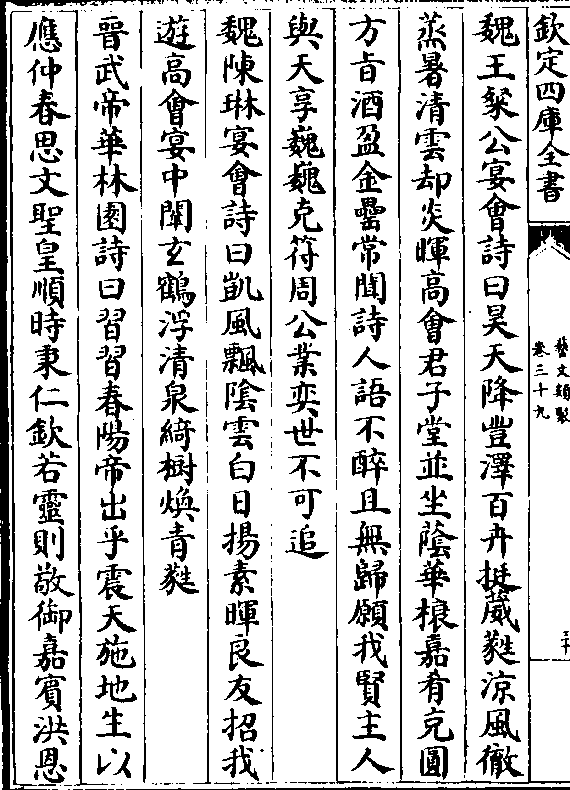 欽定四庫全書
藝文類聚
卷三十九
魏王粲公宴會詩曰昊天降豐澤百卉挺葳蕤涼風徹
蒸暑清雲却炎暉高會君子堂並坐蔭華榱嘉肴充圓
方旨酒盈金罍常聞詩人語不醉且無歸願我賢主人
與天享巍巍克符周公業奕世不可追
魏陳琳宴會詩曰凱風飄陰雲白日揚素暉良友招我
遊高會宴中闈玄鶴浮清泉綺樹煥青蕤
晉武帝華林園詩曰習習春陽帝出乎震天施地生以
應仲春思文聖皇順時秉仁欽若靈則敬御嘉賓洪恩